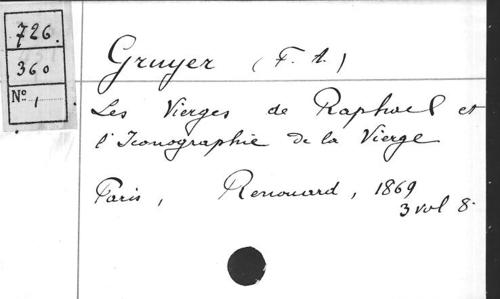 726.
360
No 1
Gruyer (F. A.)
Les Vierges de Raphael et
l'Iconographie de la Vierge
Paris, Renouard, 1869
3 vol 8.